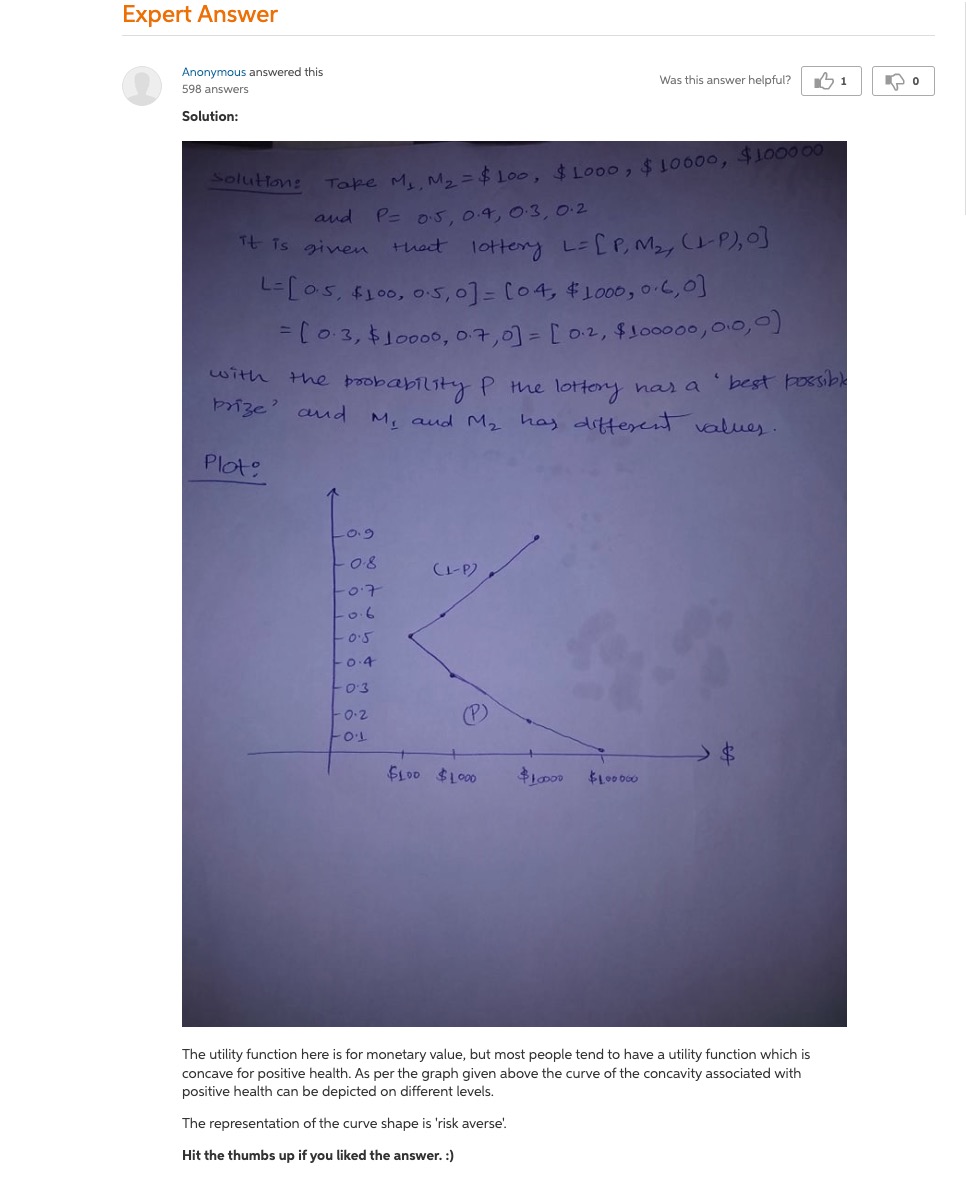 Expert Answer
Anonymous answered this
598 answers
Was this answer helpful?
1
0
Solution:
Solution: Take M1, M2 = $100, $1000, $10000, $100000
and P = 0.5, 0.4, 0.3, 0.2
it is given that lottery L=[P, M2, (1-P), 0]
L=[0.5, $100, 0.5, 0] = [04, $1000, 0.6, 0]
= [0.3, $10000, 0.7, 0] = [0.2, $100000, 0.0, 0]
with the probability P the lottery has a 'best possible
prize' and M1 and M2 has different values.
Plot:
0.9
0.8
(1-P)
0.7
0.6
0.5
0.4
0.3
0.2
(P)
0.1
$
$100 $1000 $10000 $100000
The utility function here is for monetary value, but most people tend to have a utility function which is
concave for positive health. As per the graph given above the curve of the concavity associated with
positive health can be depicted on different levels.
The representation of the curve shape is 'risk averse'.
Hit the thumbs up if you liked the answer. :)